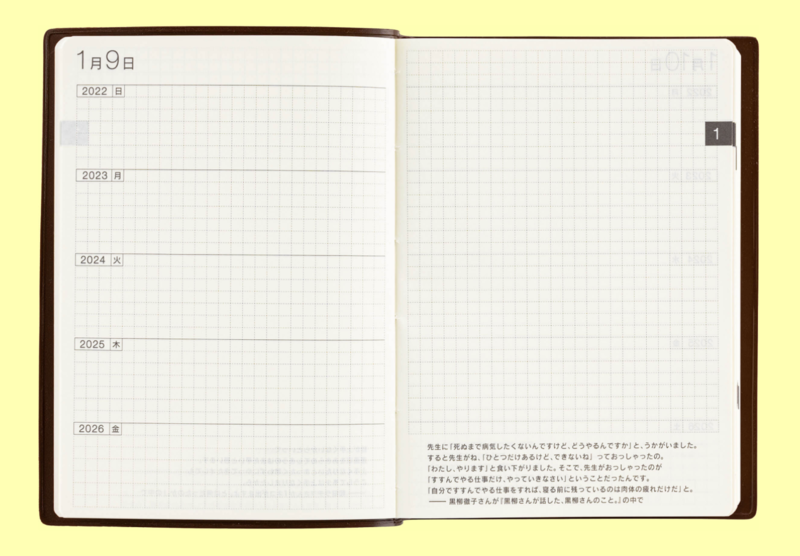 1月9日
2022 日
2023 月
2024 火
2025 木
2026 金
1
先生に「死ぬまで病気したくないんですけど、どうやるんですか」と、うかがいました。
すると先生がね、「ひとつだけあるけど、できないね」っておっしゃったの。
「わたし、やります」と食い下がりました。そこで、先生がおっしゃったのが
「すすんでやる仕事だけ、やっていきなさい」ということだったんです。
「自分ですすんでやる仕事をすれば、寝る前に残っているのは肉体の疲れだけだ」と。
―― 黒柳徹子さんが『黒柳さんが話した、黒柳さんのこと。』の中で